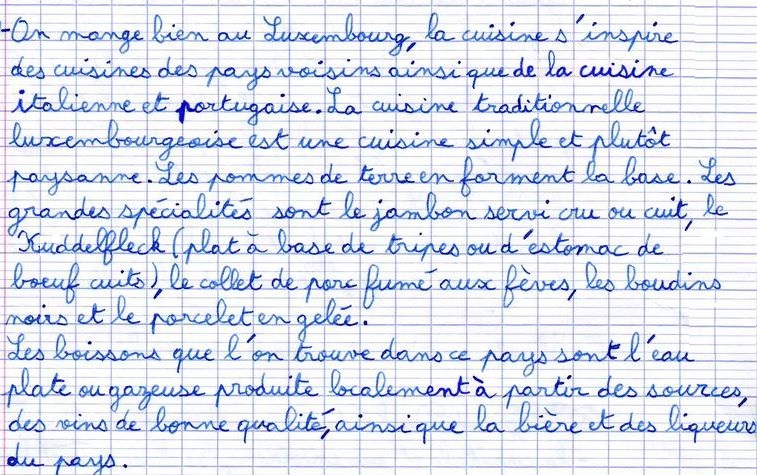 -On mange bien au Luxembourg, la cuisine s'inspire
des cuisines des pays voisins ainsi que de la cuisine
italienne et portugaise. La cuisine traditionnelle
luxembourgeoise est une cuisine simple et plutôt
paysanne. Les pommes de terre en forment la base. Les
grandes spécialités sont le jambon servi cru ou cuit, le
Kuddelfleck (plat à base de tripes ou d'estomac de
boeuf cuits), le collet de porc fumé aux fèves, les boudins
noirs et le porcelet en gelée.
Les boissons que l'on trouve dans ce pays sont l'eau
plate ou gazeuse produite localement à partir des sources,
des vins de bonne qualité, ainsi que la bière et des liqueurs
du pays.